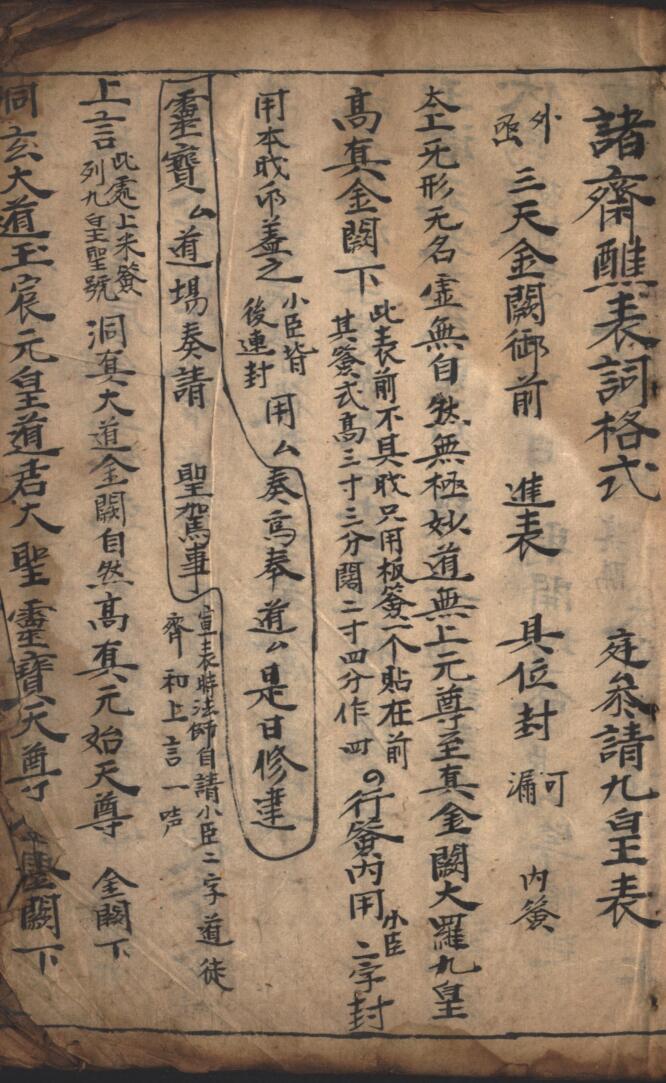 諸齋醮表詞格式　庭參請九皇表
外函　三天金闕御前　進表　具位封　可漏　內簽
太上無形无名虛無自然無極妙道無上元尊至真金闕大羅九皇
高真金闕下　此表前不具戝只用板簽一个貼在前其簽式高三寸三分闊二寸四分作四行簽內用小臣二字封
用本戝印蓋之　小臣皆後連封　用厶奏爲奉道厶是日修建
靈寶厶道場奏請　聖駕事　宣表時法師自請小臣二字道徒齊和上言一声
上言　此處上來簽列九皇聖號　洞真大道金闕自然高真元始天尊　金闕下
洞玄大道玉宸元皇道君大聖靈寶天尊　闕下